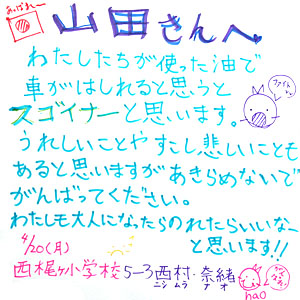 あっぱれー
山田さんへ
わたしたちが使った油で
車がはしれると思うと
スゴイナーと思います。
ファイトー
うれしいことやすこし悲しいことも
あると思いますがあきらめないで
がんばってください。
わたしも大人になったらのれたらいいなー
と思います!!
4/20(月)
西梶ヶ小学校5-3西村・奈緒
ニシムラ ナオ
nao